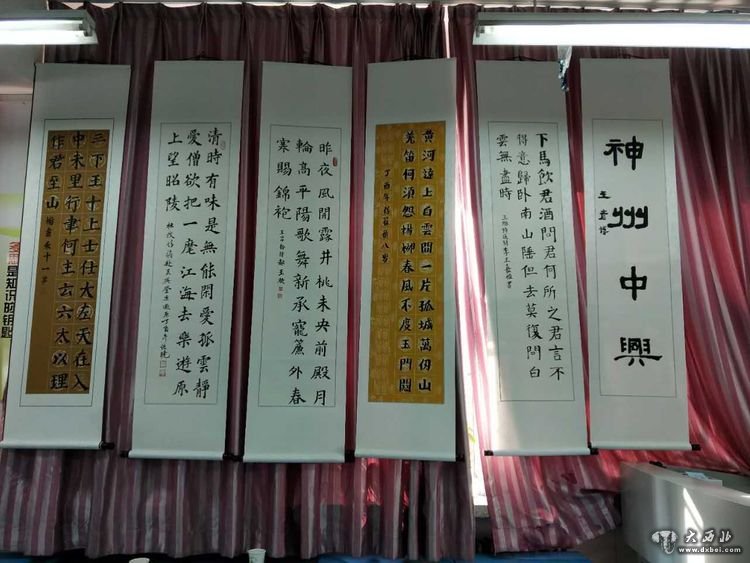 神州中興
下馬飲君酒問君何所之君言不
得意歸卧南山陲但去莫復問白
雲無盡時
黄河遠上白雲間一片孤城萬仞山
羌笛何須怨楊柳春風不度玉門關
丁酉年 八岁
昨夜風開露井桃未央前殿月
輪高平陽歌舞新承寵簾外春
寒賜錦袍
清時有味是無能閑愛孤雲靜
愛僧欲把一麾江海去樂遊原
上望昭陵
三下王十上士仕大左天在入
中未里行聿何主玄六太以理
作君至山
十一岁
是知识的钥匙
大西北
www.dxbei.com